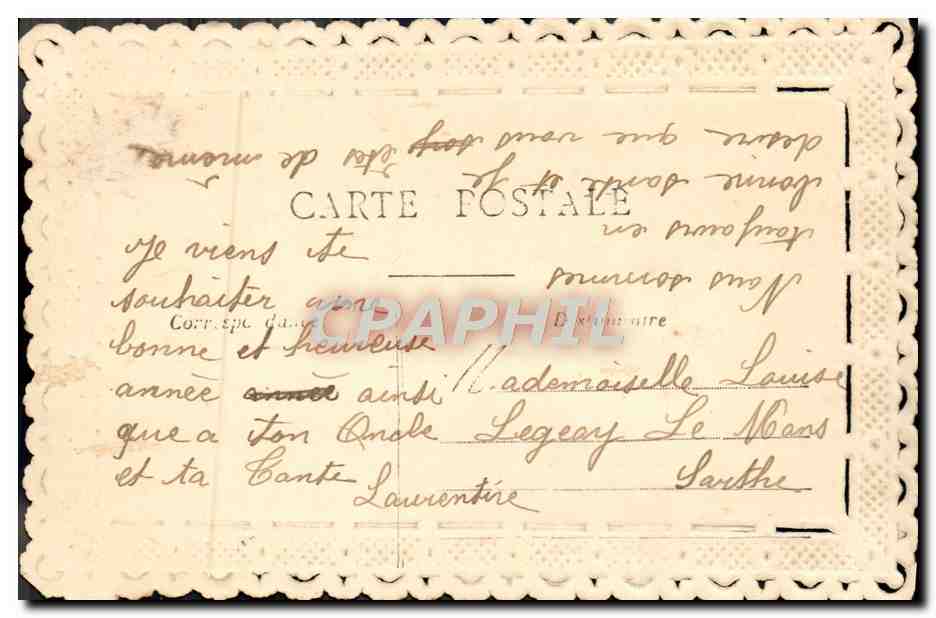 CARTE POSTALE
Correspondance
Destinataire
Je viens te
souhaiter une
bonne et heureuse
année année ainsi
que a ton Oncle
et ta Tante
Laurentine
Mademoiselle Louise
Legeay Le Mans
Sarthe
Nous sommes
toujours en
bonne santé et je
desire que vous soy êtes de meme
CPAPHIL